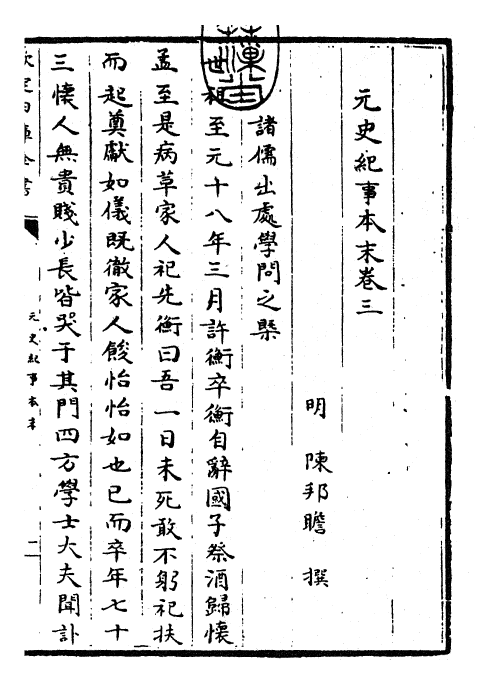 元史紀事本末卷三
明 陳邦瞻 撰
諸儒出處學問之槩
世祖至元十八年三月許衡卒衡自辭國子祭酒歸懷
孟至是病革家人祀先衡曰吾一日未死敢不躬祀扶
而起奠獻如儀既徹家人餕怡怡如也已而卒年七十
三懷人無貴賤少長皆哭于其門四方學士大夫聞訃
欽定四庫全書
元史紀事本末